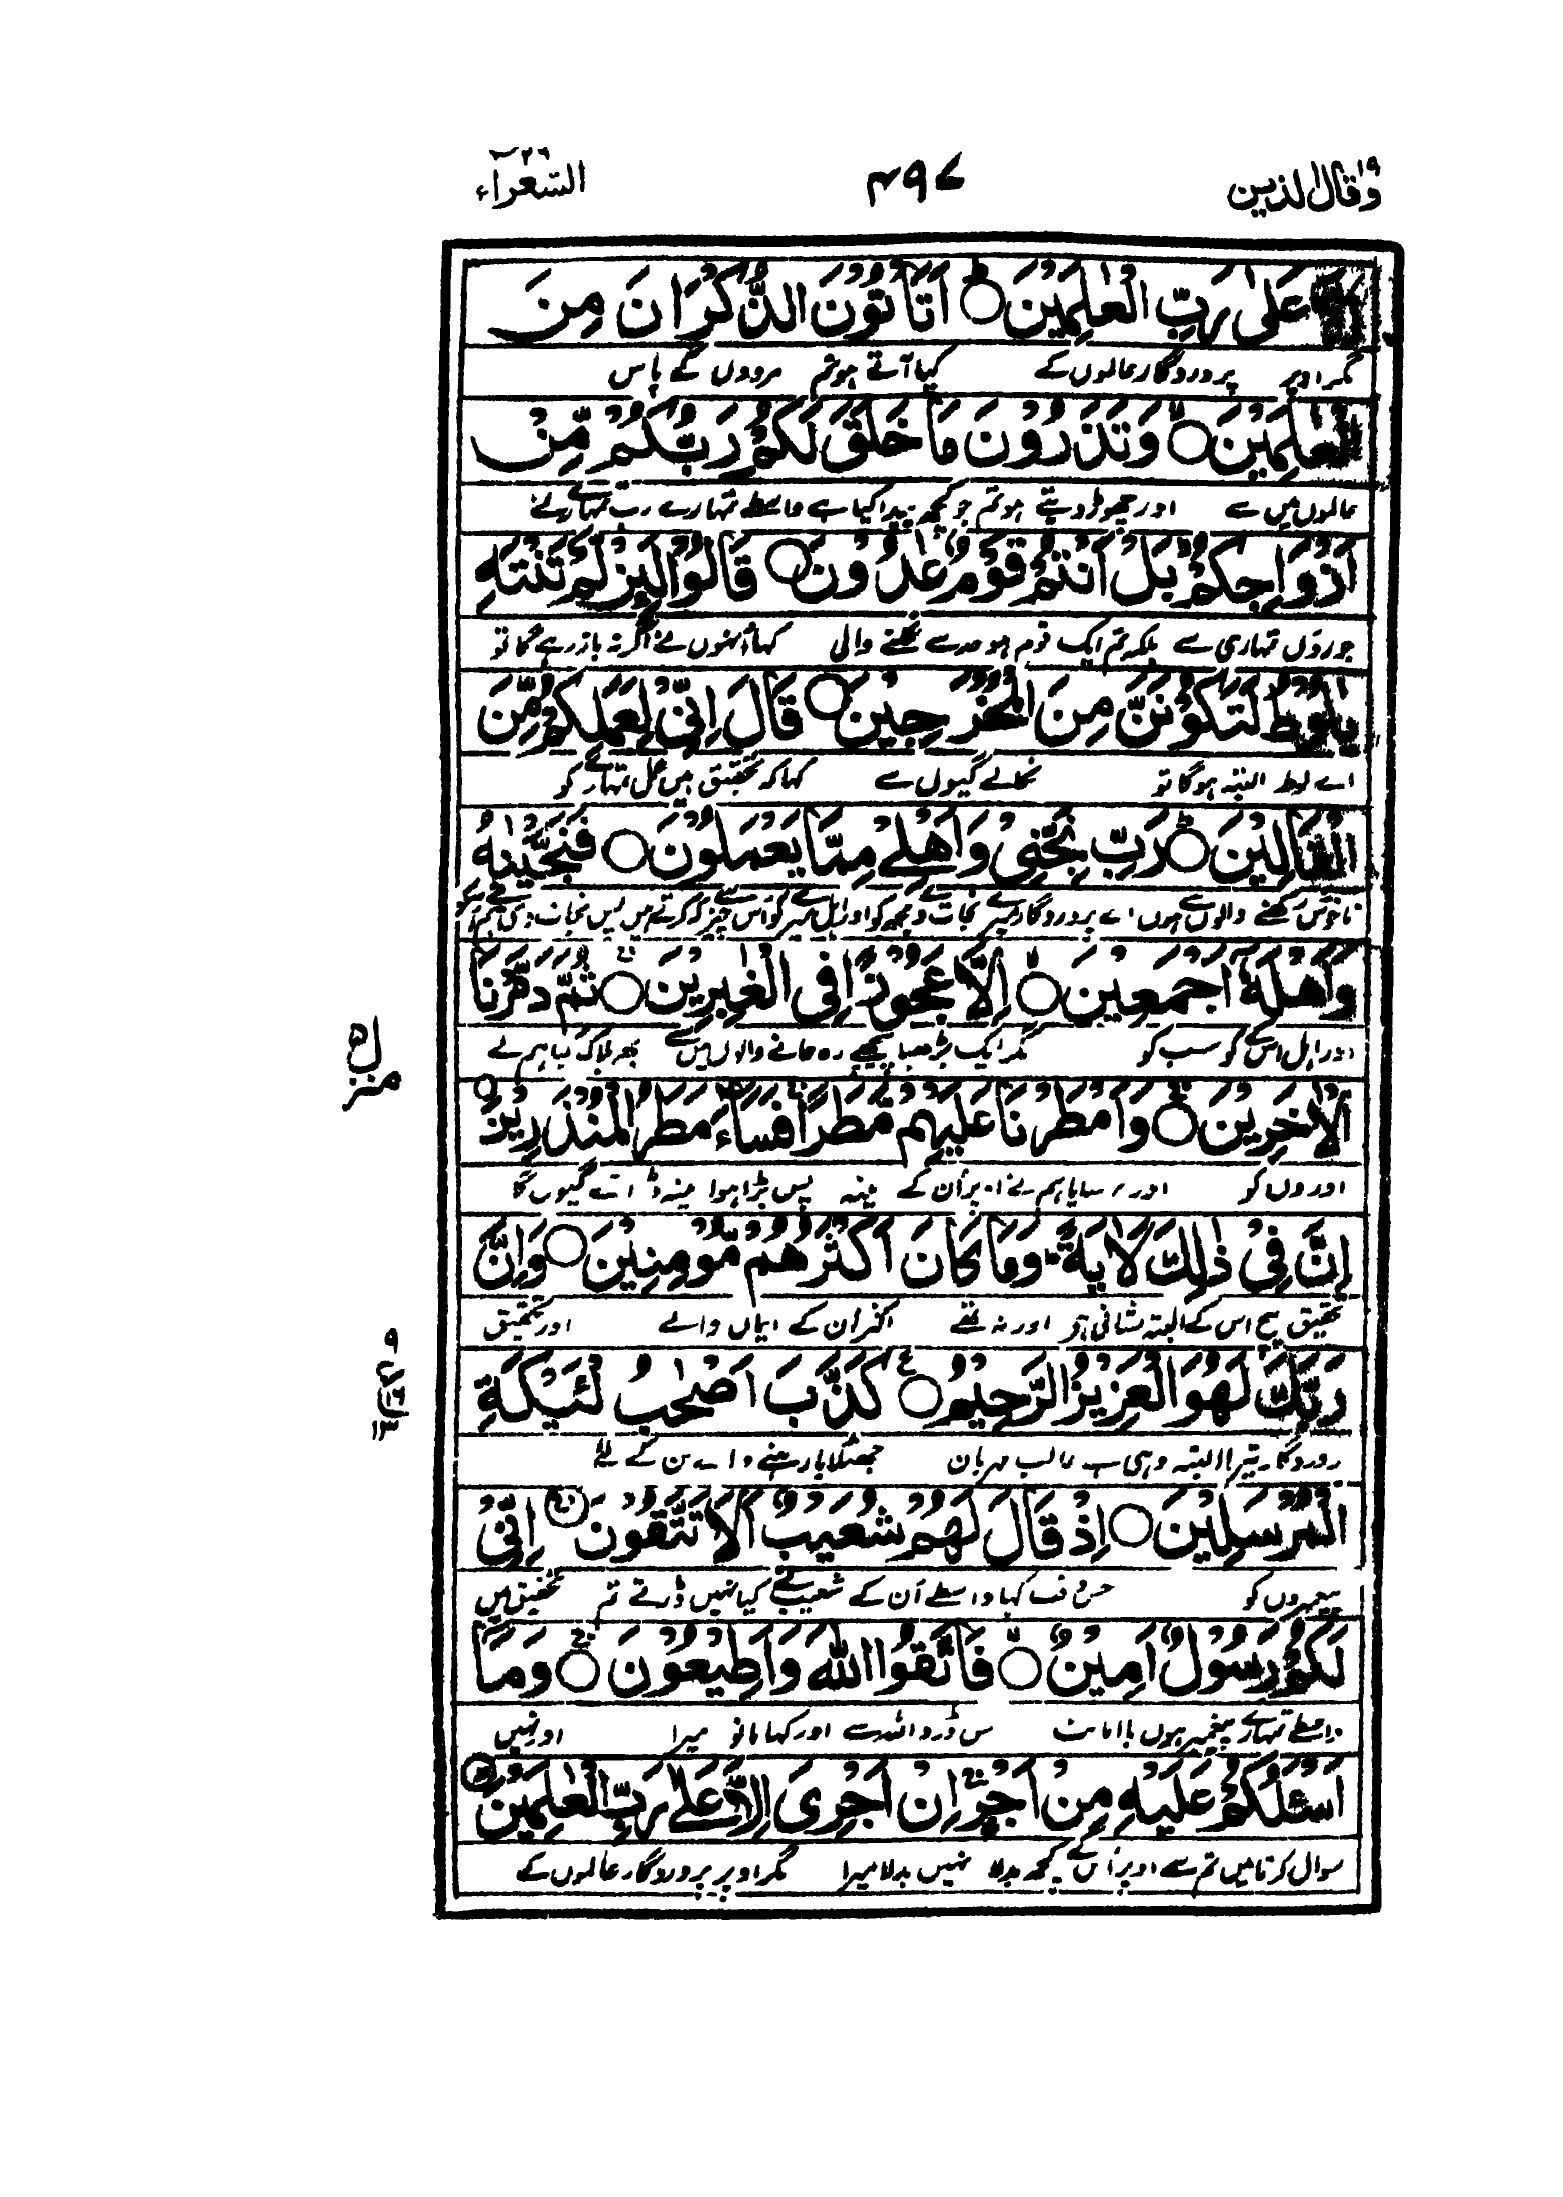 وقال الذین ١٩
٤٩٧
الشعراء ٢٦
اِلَّا عَلٰى رَبِّ الْعٰلَمِيْنَ ○ اَتَاْتُوْنَ الذُّكْرَانَ مِنَ
مگر اوپر پروردگار عالموں کے کیا آتے ہو تم مردوں کے پاس
الْعٰلَمِيْنَ ○ وَتَذَرُوْنَ مَا خَلَقَ لَكُمْ رَبُّكُمْ مِّنْ
عالموں میں سے اور چھوڑ دیتے ہو تم جو کچھ پیدا کیا ہے واسطے تمہارے رب تمہارے نے
اَزْوَاجِكُمْ بَلْ اَنْتُمْ قَوْمٌ عٰدُوْنَ ○ قَالُوْا لَئِنْ لَّمْ تَنْتَهِ
جوروں تمہاری سے بلکہ تم ایک قوم ہو حد سے نکلنے والی کہا اُنہوں نے اگر نہ باز رہے گا تو
يٰلُوْطُ لَتَكُوْنَنَّ مِنَ الْمُخْرَجِيْنَ ○ قَالَ اِنِّيْ لِعَمَلِكُمْ مِّنَ
اے لوط البتہ ہوگا تو نکالے گیوں سے کہا کہ تحقیق میں عمل تمہارے کو
الْقَالِيْنَ ○ رَبِّ نَجِّنِيْ وَاَهْلِيْ مِمَّا يَعْمَلُوْنَ ○ فَنَجَّيْنٰهُ
ناخوش رکھنے والوں سے ہوں اے پروردگار میرے نجات دے مجھ کو اور اہل میرے کو اس چیز سے کہ کرتے ہیں پس نجات دی ہم نے اُسکو
وَاَهْلَهٗٓ اَجْمَعِيْنَ ○ اِلَّا عَجُوْزًا فِى الْغٰبِرِيْنَ ○ ثُمَّ دَمَّرْنَا
اور اہل اُس کے کو سب کو مگر ایک بڑھیا پیچھے رہ جانے والوں میں سے پھر ہلاک کیا ہم نے
الْاٰخَرِيْنَ ○ وَاَمْطَرْنَا عَلَيْهِمْ مَّطَرًا فَسَآءَ مَطَرُ الْمُنْذَرِيْنَ ○
اوروں کو اور برسایا ہم نے اوپر اُن کے مینہ پس بُرا ہوا مینہ ڈرائے گیوں کا
اِنَّ فِيْ ذٰلِكَ لَاٰيَةً وَمَا كَانَ اَكْثَرُهُمْ مُّؤْمِنِيْنَ ○ وَاِنَّ
تحقیق بیچ اس کے البتہ نشانی ہے اور نہ تھے اکثر اُن کے ایمان والے اور تحقیق
رَبَّكَ لَهُوَ الْعَزِيْزُ الرَّحِيْمُ ○ كَذَّبَ اَصْحٰبُ لْئَيْكَةِ
پروردگار تیرا البتہ وہی ہے غالب مہربان جھٹلایا رہنے والے بن کے نے
الْمُرْسَلِيْنَ ○ اِذْ قَالَ لَهُمْ شُعَيْبٌ اَلَا تَتَّقُوْنَ ○ اِنِّيْ
پیغمبروں کو جس وقت کہا واسطے اُن کے شعیب نے کیا نہیں ڈرتے تم تحقیق میں
لَكُمْ رَسُوْلٌ اَمِيْنٌ ○ فَاتَّقُوا اللهَ وَاَطِيْعُوْنِ ○ وَمَآ
واسطے تمہارے پیغمبر ہوں باامانت پس ڈرو اللہ سے اور کہا مانو میرا اور نہیں
اَسْئَلُكُمْ عَلَيْهِ مِنْ اَجْرٍ اِنْ اَجْرِىَ اِلَّا عَلٰى رَبِّ الْعٰلَمِيْنَ ○
سوال کرتا میں تم سے اوپر اُس کے کچھ بدلا نہیں بدلا میرا مگر اوپر پروردگار عالموں کے
منزل ٥